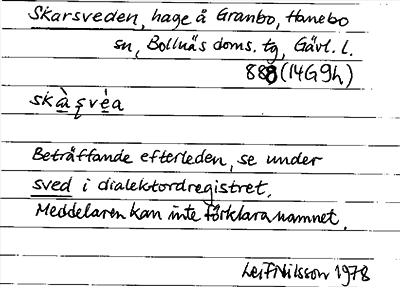 Skarsveden, hage å Granbo, Hanebo
sn, Bollnäs doms. tg, Gävl. l.
888 (14G9h)
skà̱ʂvè̱a
Beträffande efterleden, se under
sved i dialektordregistret.
Meddelaren kan inte förklara namnet.
Leif Nilsson 1978